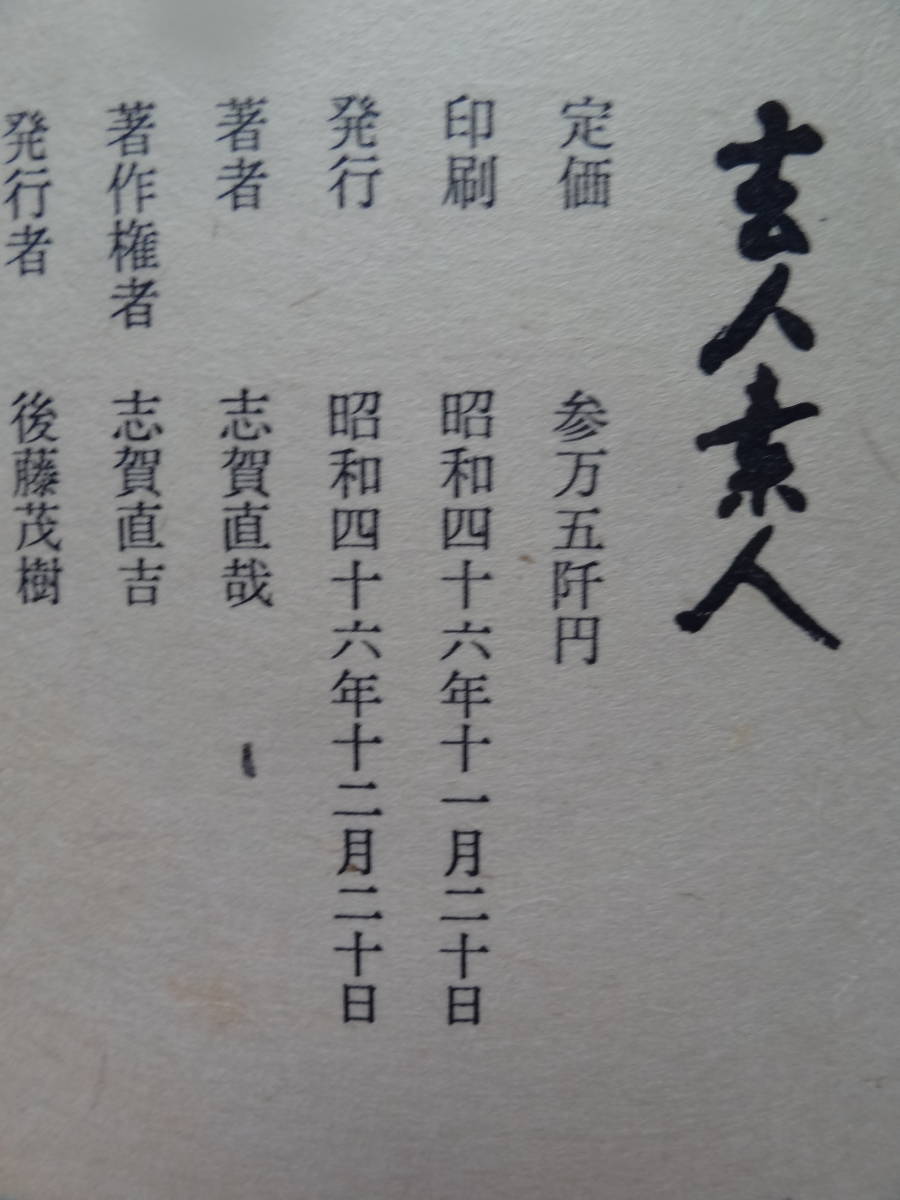 玄人素人
定価 参万五阡円
印刷 昭和四十六年十一月二十日
発行 昭和四十六年十二月二十日
著者 志賀直哉
著作権者 志賀直吉
発行者 後藤茂樹